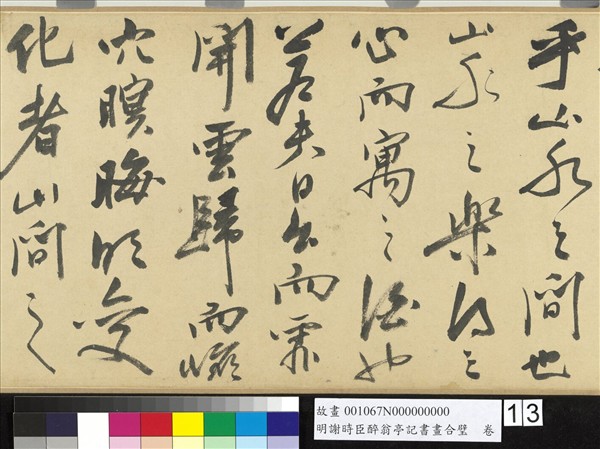 乎山水之間也
山水之樂得之
心而寓之酒也
若夫日出而霏
開雲歸而巖
穴暝晦明變
化者山間之
故畫 001067N000000000
明謝時臣醉翁亭記書畫合璧 卷
13